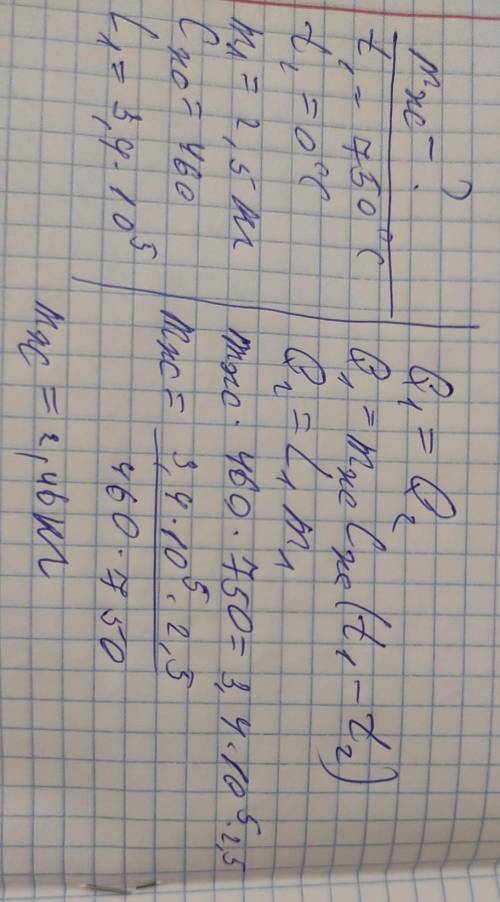 mж - ?
t₁ = 750°C
t₂ = 0°C
m₁ = 2,5 кг
Cж = 460
L₁ = 3,4 · 10⁵
Q₁ = Q₂
Q₁ = mж Cж (t₁ - t₂)
Q₂ = L₁ m₁
mж · 460 · 750 = 3,4 · 10⁵ · 2,5
mж = 3,4 · 10⁵ · 2,5
460 · 750
mж = 2,46 кг